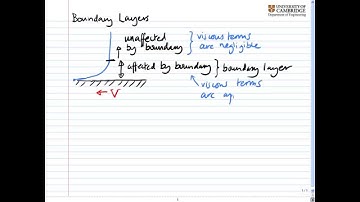 Boundary Layers
UNIVERSITY OF
CAMBRIDGE
Department of Engineering
unaffected
by boundary
viscous terms
are negligible
affected by boundary
boundary layer
viscous terms
are
V